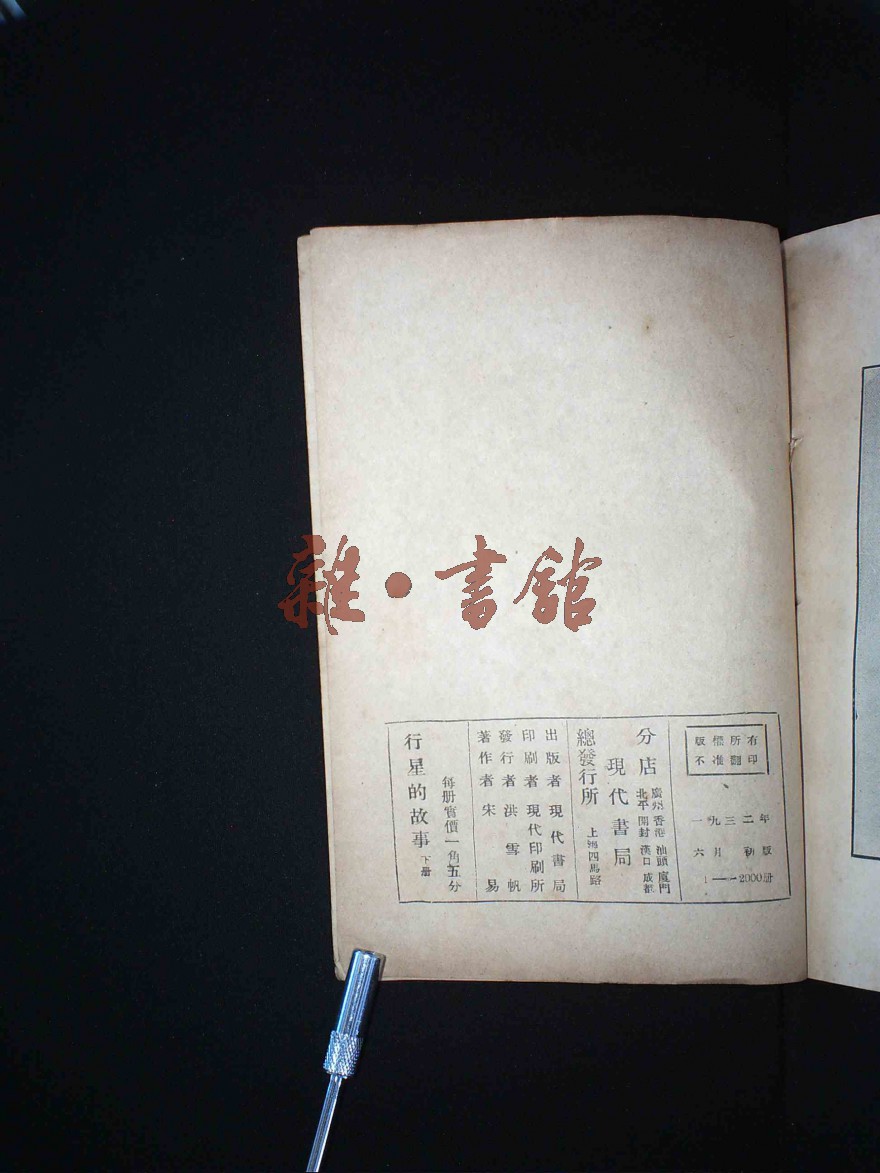 雜•書館
版權所有
不准翻印
一九三二年
六月初版
1——2000册
分店
廣州 香港 汕頭 廈門
北平 開封 漢口 成都
現代書局
總發行所
上海四馬路
出版者 現代書局
印刷者 現代印刷所
發行者 洪雪帆
著作者 宋易
每册實價一角五分
行星的故事 下册